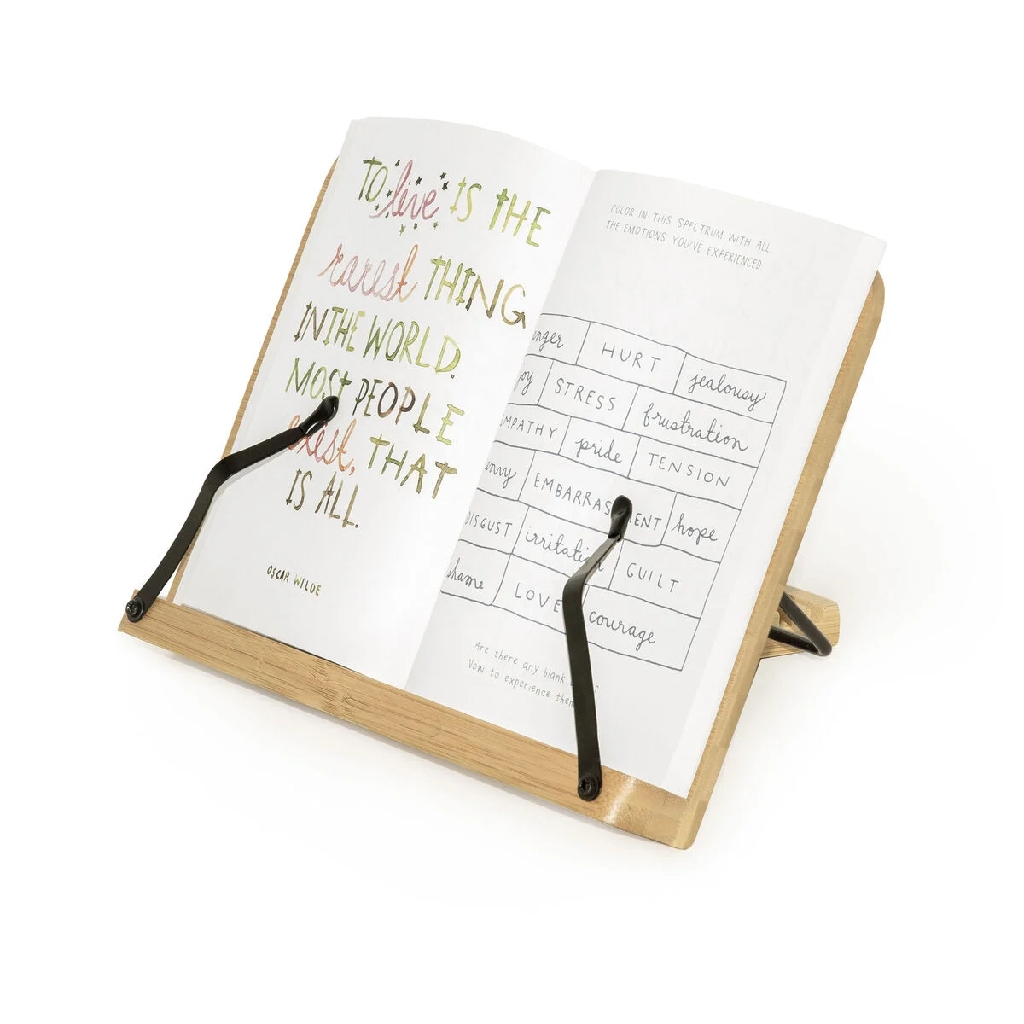 TO live IS THE
rarest THING
IN THE WORLD.
MOST PEOPLE
exist, THAT
IS ALL.
OSCAR WILDE
COLOR IN THIS SPECTRUM WITH ALL
THE EMOTIONS YOU'VE EXPERIENCED.
nger HURT jealousy
oy STRESS frustration
MPATHY pride TENSION
nvy EMBARRAS ENT hope
DISGUST irritation GUILT
shame LOVE courage
Are there any blank
Vow to experience them